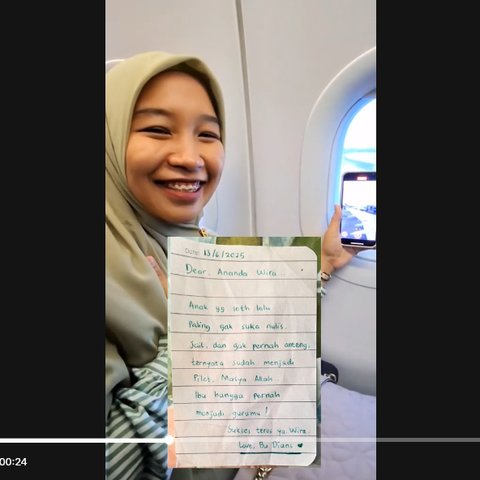 Date: 13/6/2025
Dear, Ananda Wira..
Anak yg 10th lalu
Paling gak suka nulis.
Jail, dan gak pernah anteng,
ternyata sudah menjadi
Pilot, Masya Allah..
Ibu bangga pernah
menjadi gurumu!
Sukses terus ya, Wira.
Love, Bu Diani
00:24